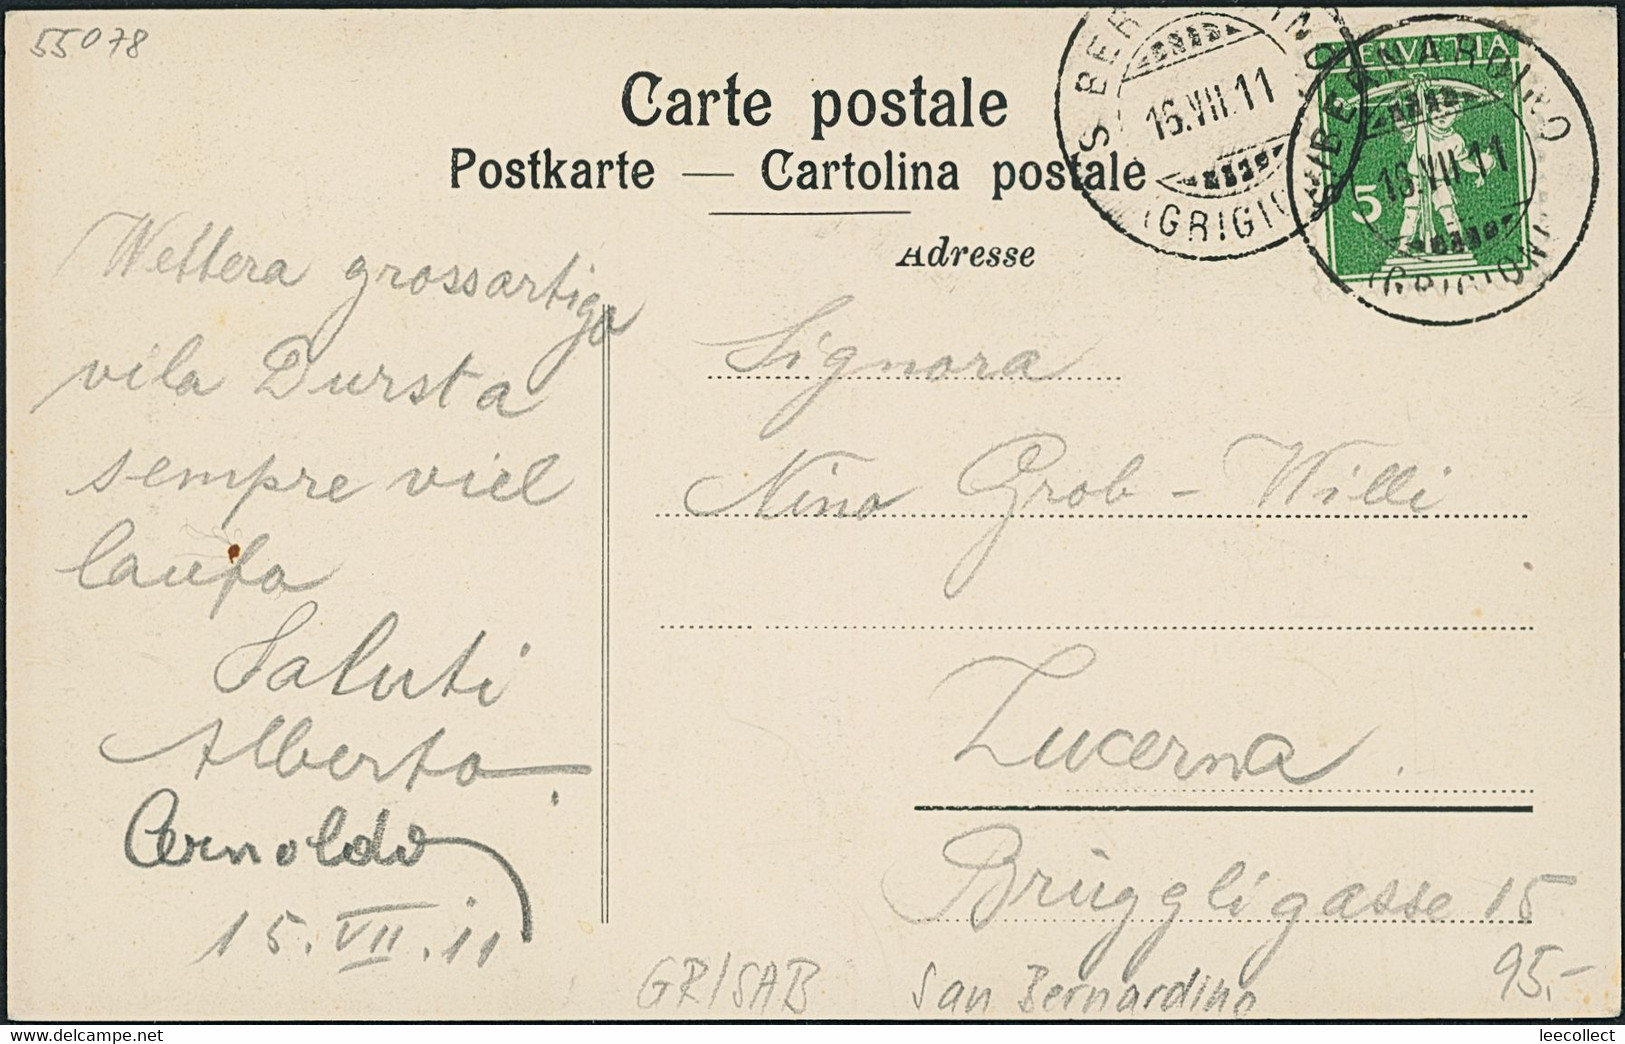 55078
Carte postale
Postkarte — Cartolina postale
Adresse
S. BERNARDINO
16.VII.11
(GRIGIONI)
HELVETIA
5
S. BERNARDINO
16.VII.11
(GRIGIONI)
Wettera grossartiga
vila Dursta
sempre viel
laufa
Saluti
Alberto
Arnoldo
15.VII.11
Signora
Nina Grob-Willi
Lucerna.
Brüggligasse 15
GR/SAB
San Bernardino
95.-
leecollect